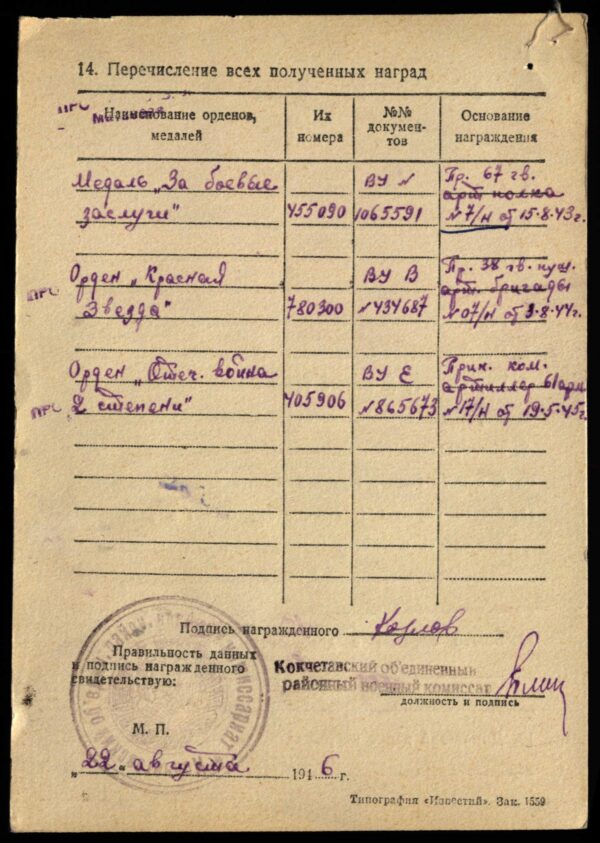 14. Перечисление всех полученных наград
Наименование орденов, медалей
Их номера
№№ документов
Основание награждения
Медаль „За боевые
заслуги"
455090
ВУ №
1065591
Пр. 67 гв.
арт полка
№ 7/н от 15.8.43г.
Орден „Красная
Звезда"
780300
ВУ В
№434687
Пр. 38 гв. пуш.
арт. бригады
№07/н от 3.8.44г.
ПРС
Орден „Отеч. война
2 степени"
405906
ВУ Е
№865673
Прик. ком.
артиллер 61 арм
№17/н от 19.5.45г.
ПРС
Подпись награжденного Козлов
Правильность данных
и подпись награжденного
свидетельствую:
Кокчетавский объединенный
районный военный комиссат
должность и подпись
М. П.
„22" августа 1946 г.
Типография «Известий». Зак. 1559